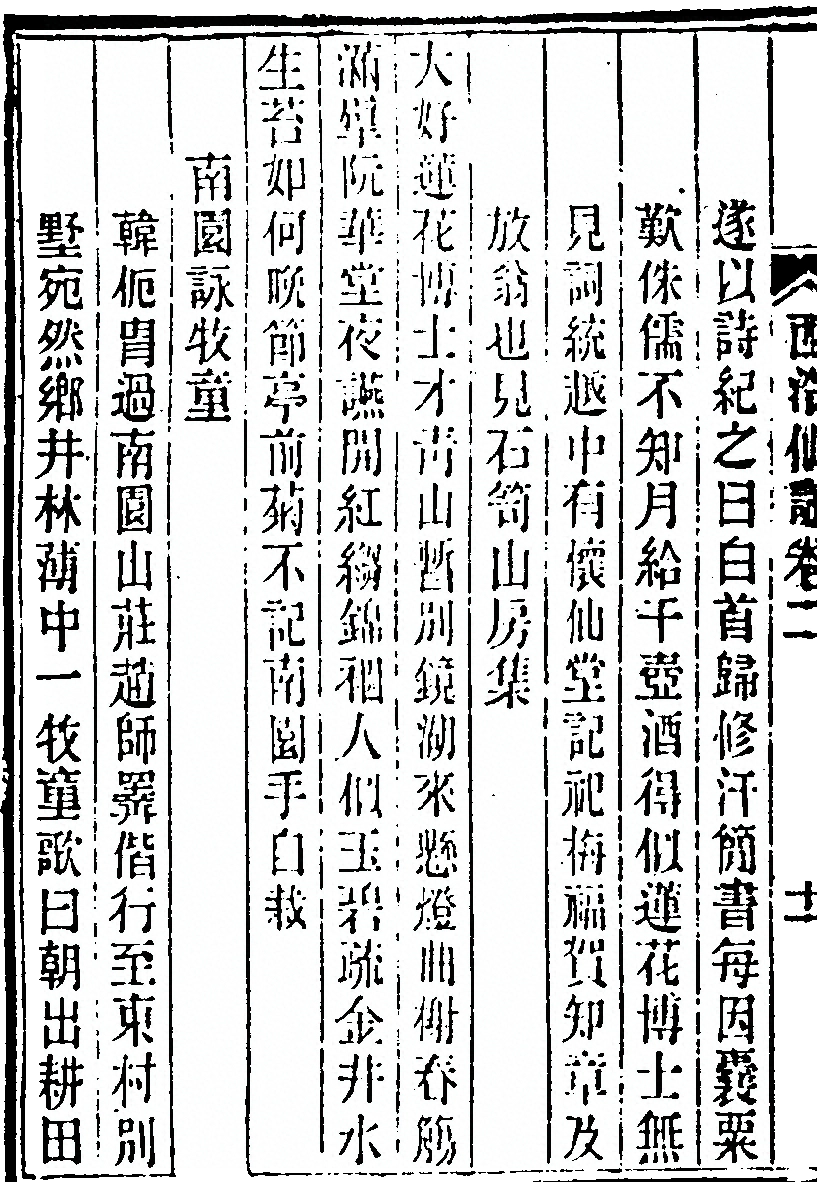 西泠仙詠卷二　十一
遂以詩紀之曰白首歸修汗簡書每因囊粟
歎侏儒不知月給千壺酒得似蓮花博士無
見詞統越中有懷仙堂記祀梅福賀知章及
放翁也見石笥山房集
大好蓮花博士才青山暫別鏡湖來懸燈曲榭春觴
滿犀阮華堂夜讌開紅縐錦裀人似玉碧疏金井水
生苔如何晚節亭前菊不記南園手自栽
南園詠牧童
韓侂胄過南園山莊趙師𢍰偕行至東村別
墅宛然鄉井林薄中一牧童歌曰朝出耕田